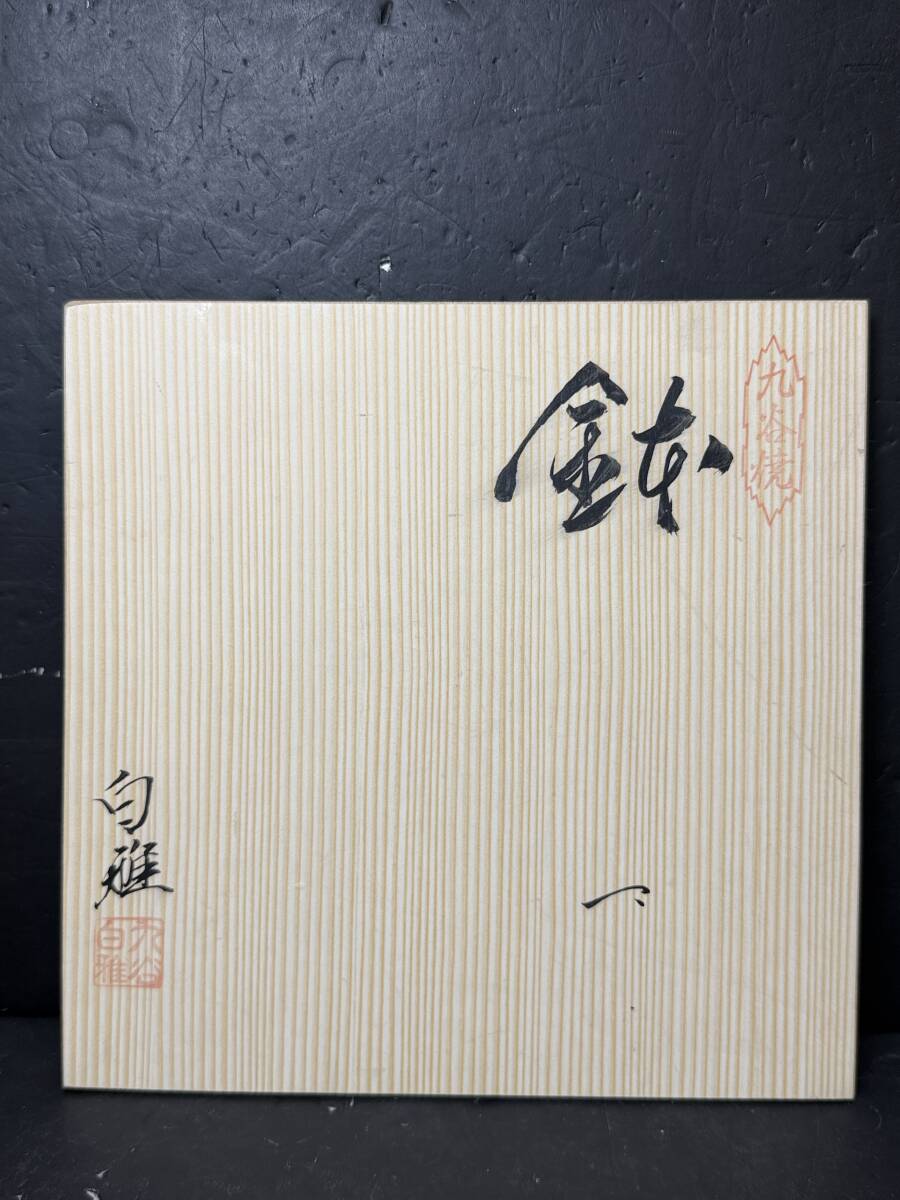 九谷焼
鉢
白雅
九谷
白雅